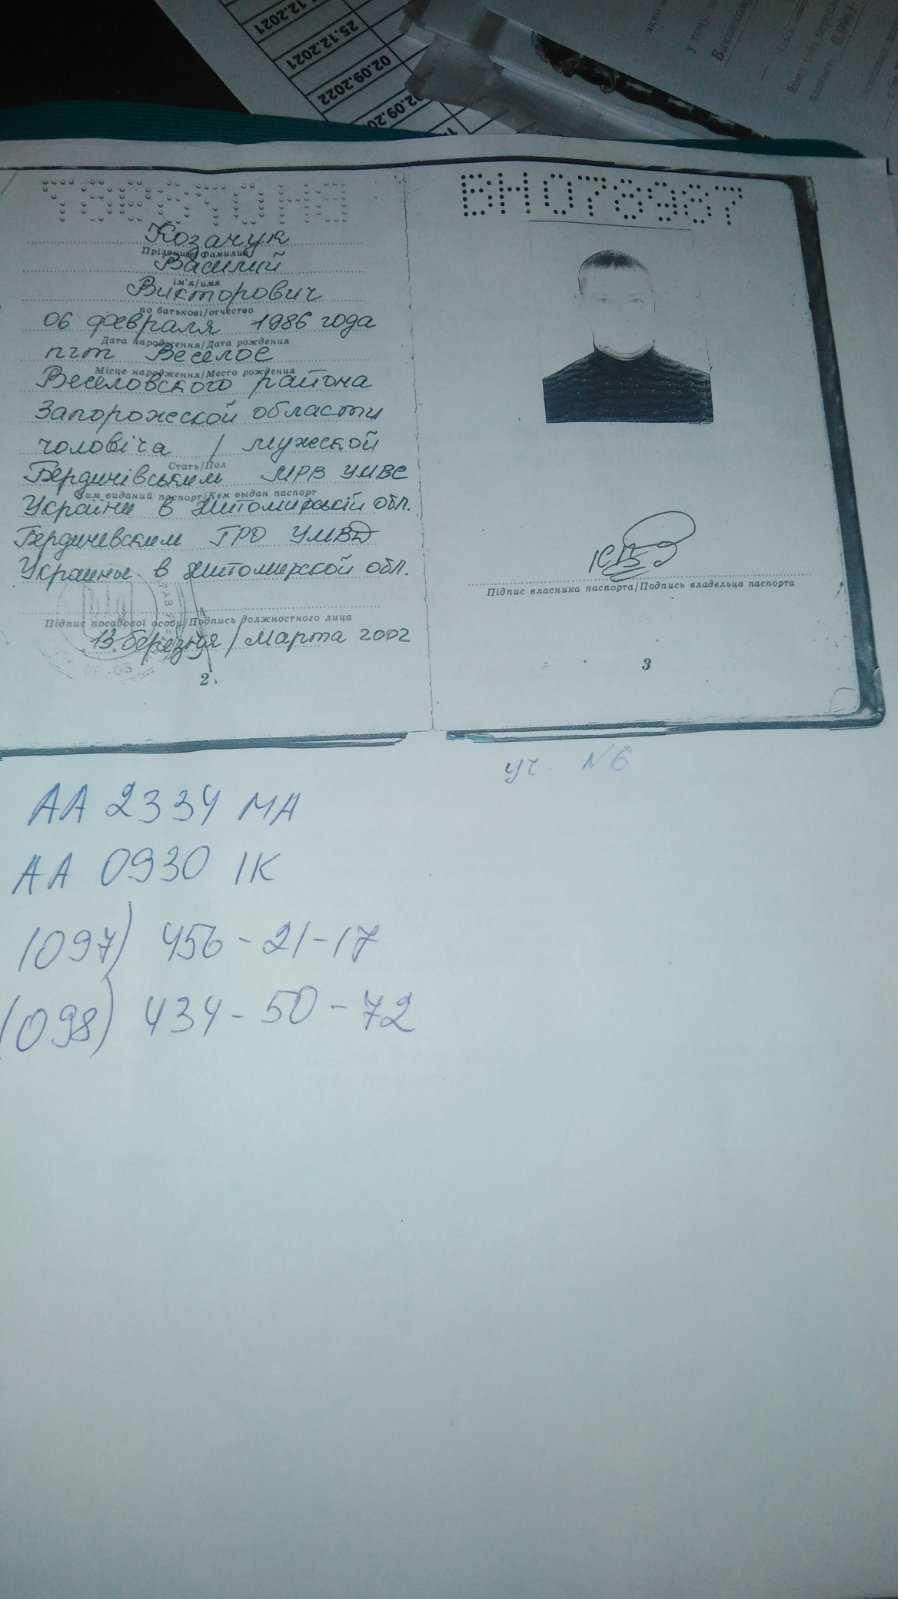 25.12.2021
02.09.2022
ВН078987
Козачук
Прізвище/Фамилия
Василий
ім'я/имя
Викторович
по батькові/отчество
06 февраля 1986 года
Дата народження/Дата рождения
пгт Веселое
Місце народження/Место рождения
Веселовского района
Запорожской области
чоловіча / мужской
Стать/Пол
Бердичівським МРВ УМВС
Ким виданий паспорт/Кем выдан паспорт
України в Житомирській обл.
Бердичевским ГРО УМВД
Украины в Житомирской обл.
Підпис посадової особи/Подпись должностного лица
13 березня / марта 2002
2
Підпис власника паспорта/Подпись владельца паспорта
3
уч. №6
АА 2334 МА
АА 0930 ІК
(097) 456-21-17
(098) 434-50-72